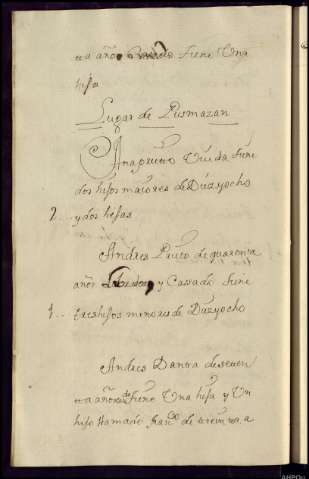 tta años Casado tiene Una
hija
Lugar de Pismazan
Ana prieto Viuda tiene
dos hijos maiores de Diez y ocho
2 .. y dos hijas
Andres Prieto de quarenta
años Labrador y Casado tiene
1 .. tres hijos menores de Diez y ocho
Andres Dantra de seten
tta años tiene Una hija y Un
hijo llamado fran.co de treinta, a
AHPOu